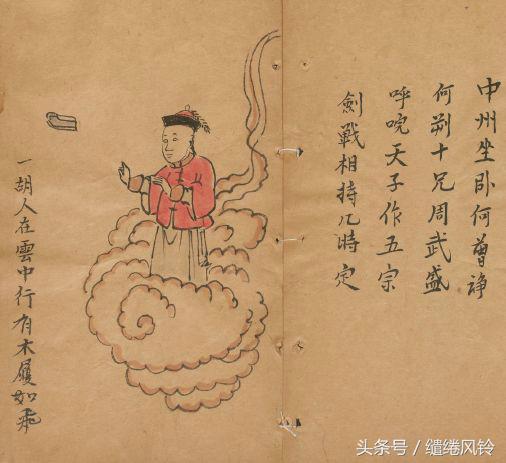 中州坐卧何曾诤
何朔十兄周武盛
呼唍天子作五宗
劍戰相持几時定
一胡人在雲中行有木履如飛
头条号 / 缱绻风铃